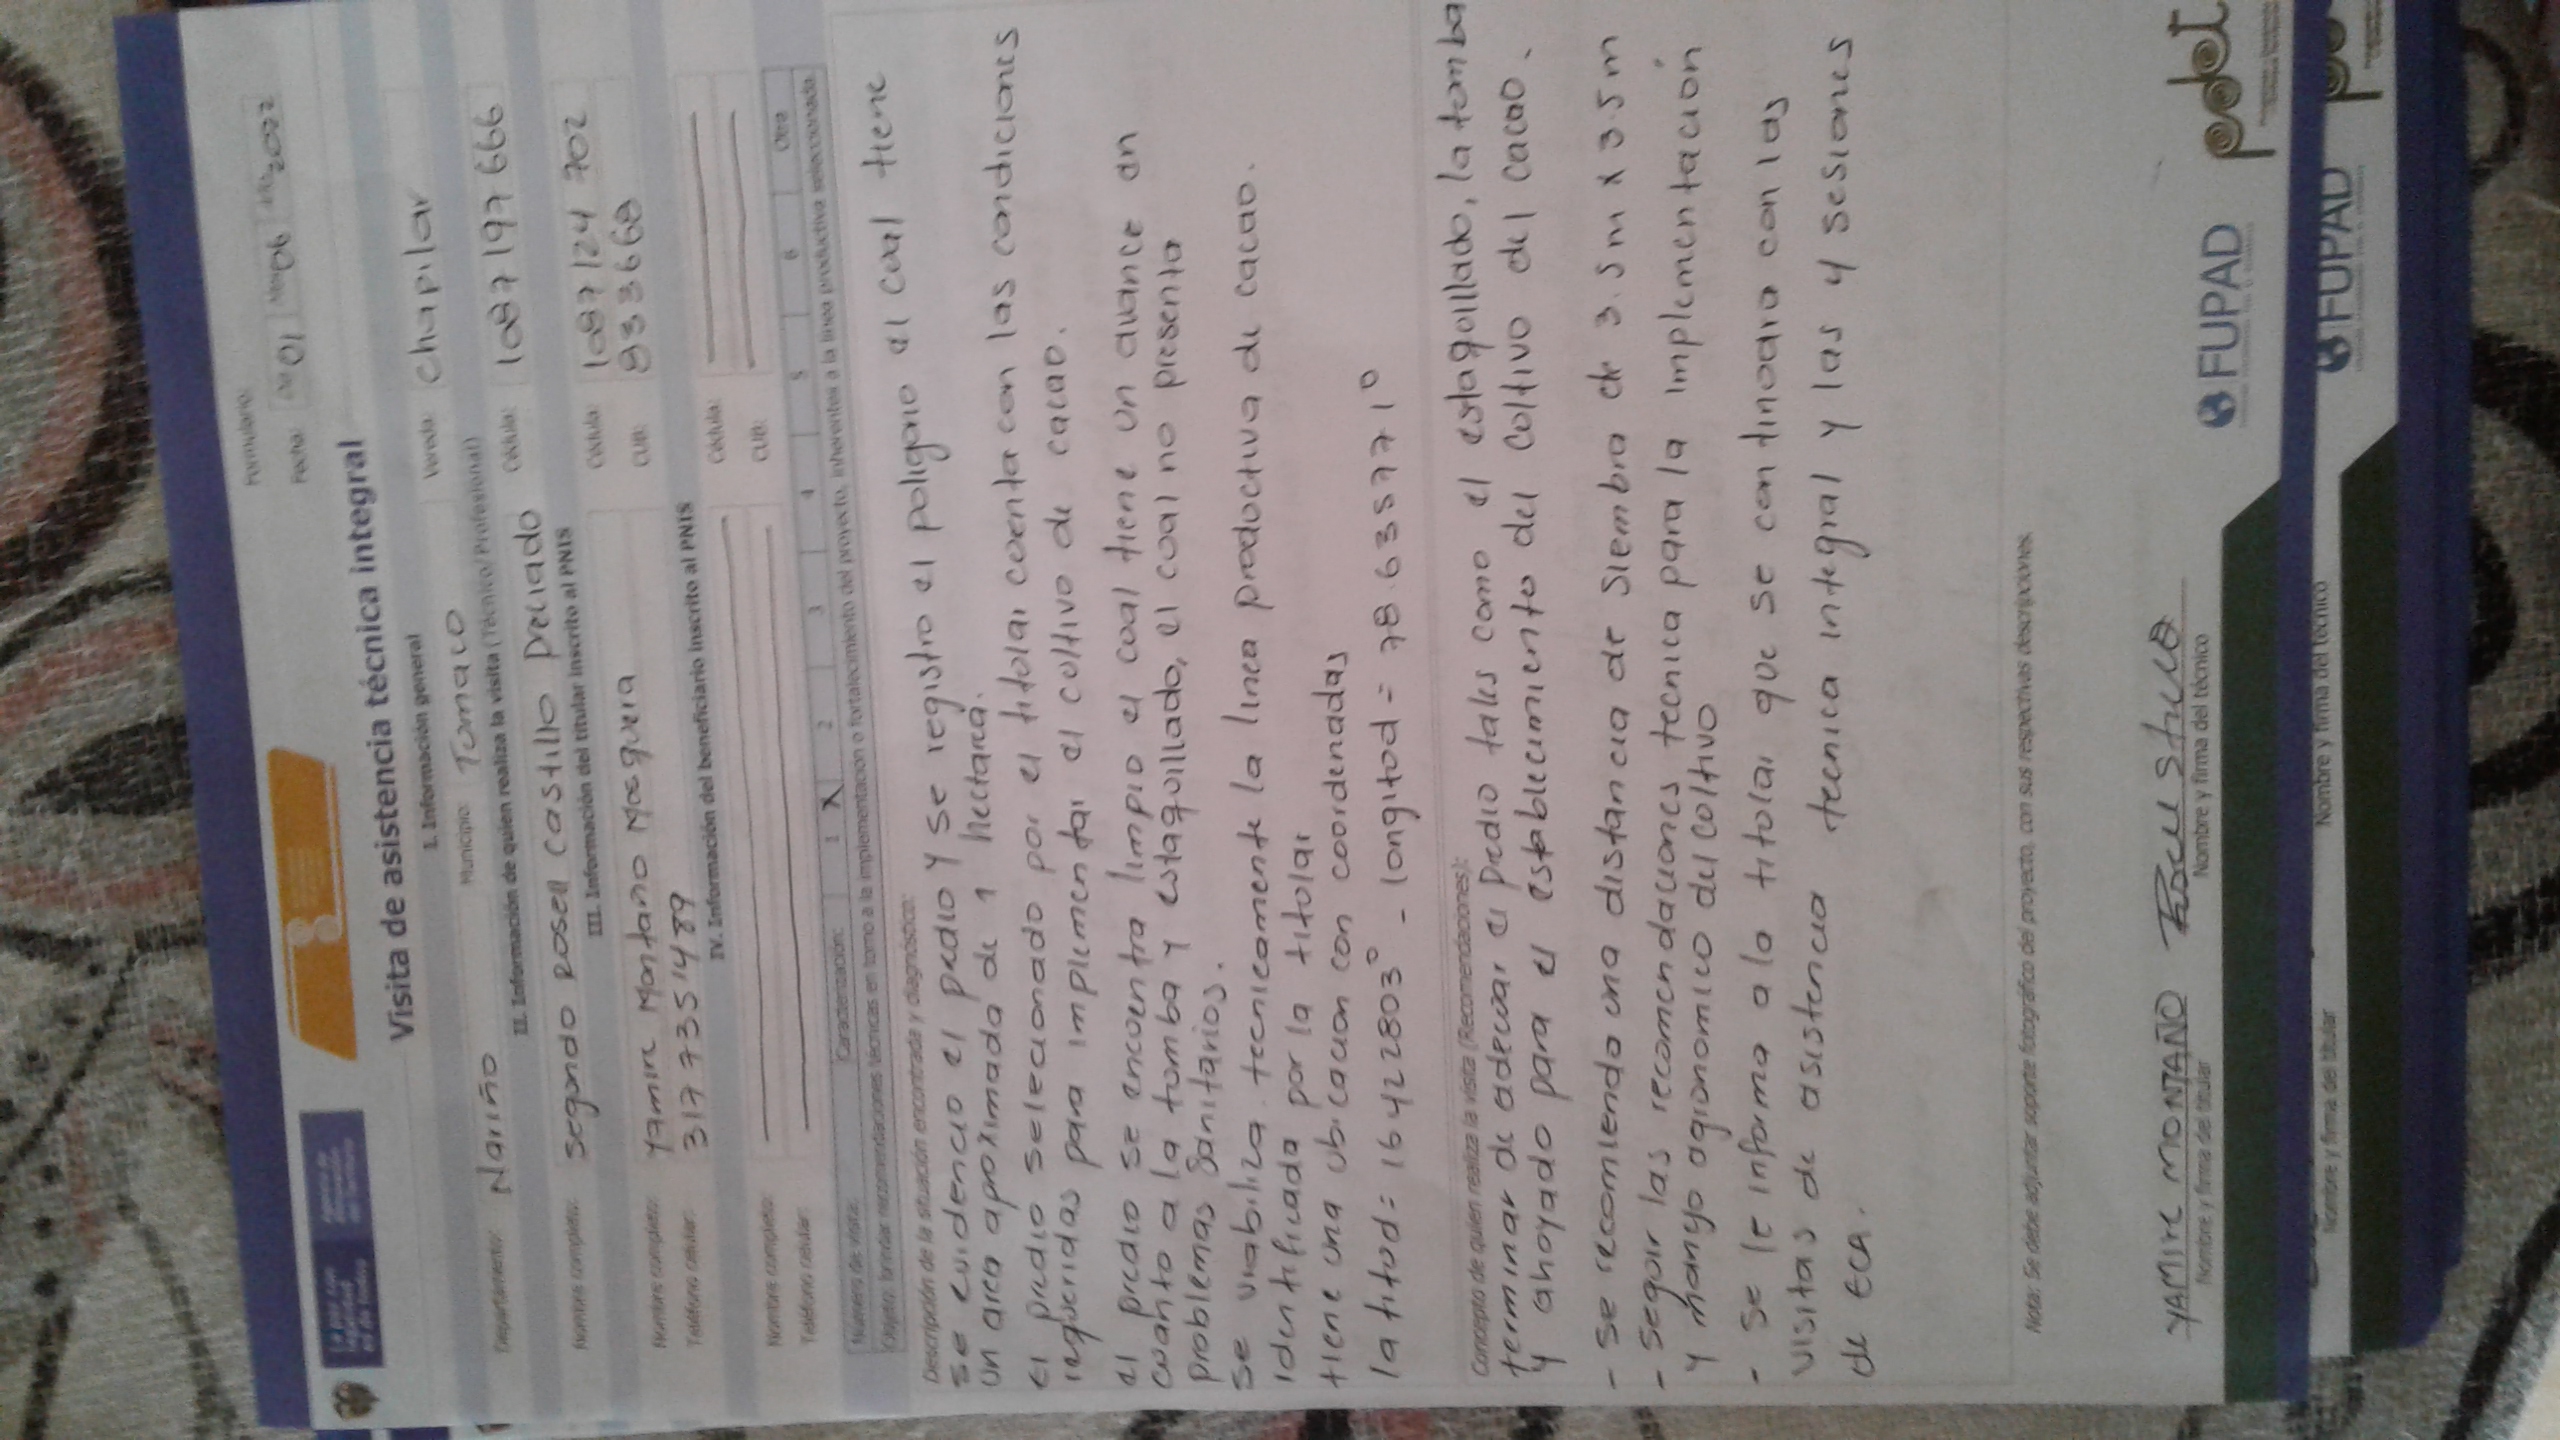 Formulario:
Fecha: 01 06 2022
Visita de asistencia técnica integral
I. Información general
Departamento: Nariño Municipio: Tomaco Vereda: chapilar
II. Información de quien realiza la visita (Técnico/Profesional)
Nombre completo: Segondo Rosell castillo preciado Cédula: 1087197666
III. Información del titular inscrito al PNIS
Nombre completo: Yamire Montaño Mosquera Cédula: 1087124702
Teléfono celular: 3177351489 CUB:
IV. Información del beneficiario inscrito al PNIS
Nombre completo: Cédula:
Teléfono celular: CUB:
Número de visita: Caracterización: 1 X 2 3 4 5 6 Otra
Objeto: brindar recomendaciones técnicas en torno a la implementación o fortalecimiento del proyecto, inherentes a la línea productiva seleccionada.
Descripción de la situación encontrada y diagnóstico:
se evidencio el predio y se registro el poligono el cual tiene
un area aproximada de 1 hectarea.
el predio seleccionado por el titolar coenta con las condiciones
requeridas para implementar el cultivo de cacao.
el predio se encoentra limpio el coal tiene un avance en
coanto a la tomba y estaquillado, el coal no presenta
problemas Sanitarios.
se viabiliza tecnicamente la linea prodoctiva de cacao.
identificada por la titolar
tiene una ubicacion con coordenadas
latitod= 16422803° - longitod = 78.6357771°
Concepto de quien realiza la visita (Recomendaciones):
terminar de adecuar el predio tales como el estagollado, la tomba
y ahoyado para el establecimiento del coltivo del cacao.
- se recomienda una distancia de siembra de 3.5m x 3.5m
- Segoir las recomendaciones tecnica para la implementación
y manejo agronomico del coltivo
- se le informa a la titolar que se continoara con las
visitas de asistencia tecnica integral y las 4 sesiones
de ECA.
Nota: Se debe adjuntar soporte fotográfico del proyecto, con sus respectivas descripciones.
YAMIRE MONTAÑO
Nombre y firma del titular Nombre y firma del técnico
FUPAD pdet
Nombre y firma del titular Nombre y firma del técnico
FUPAD